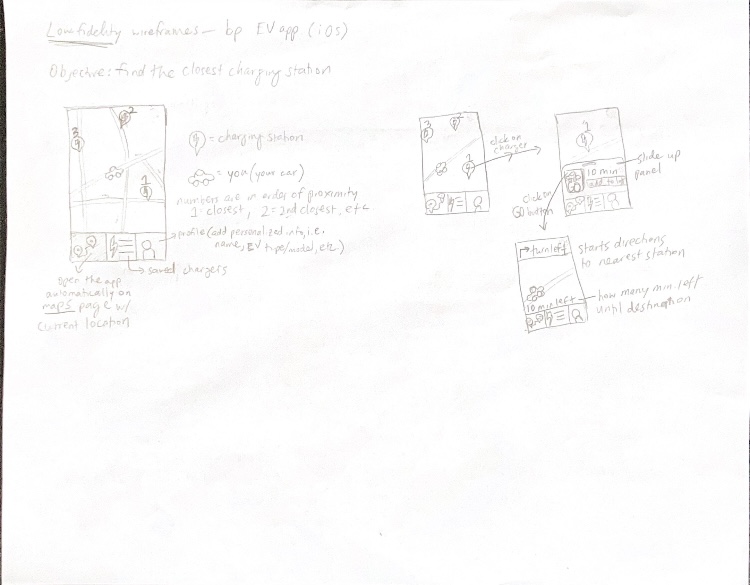 Low fidelity wireframes - bp EV app (iOS)
Objective: find the closest charging station
3
2
1
= charging station
= you (your car)
numbers are in order of proximity
1 closest, 2 = 2nd closest, etc
profile (add personalized info, i.e.
name, EV type/model, etc)
saved chargers
open the app
automatically on
maps page w/
current location
3
2
1
click on
charger
1
10 min
add to
slide up
panel
click on
GO button
turn left
starts directions
to nearest station
10 min left
how many min. left
until destination